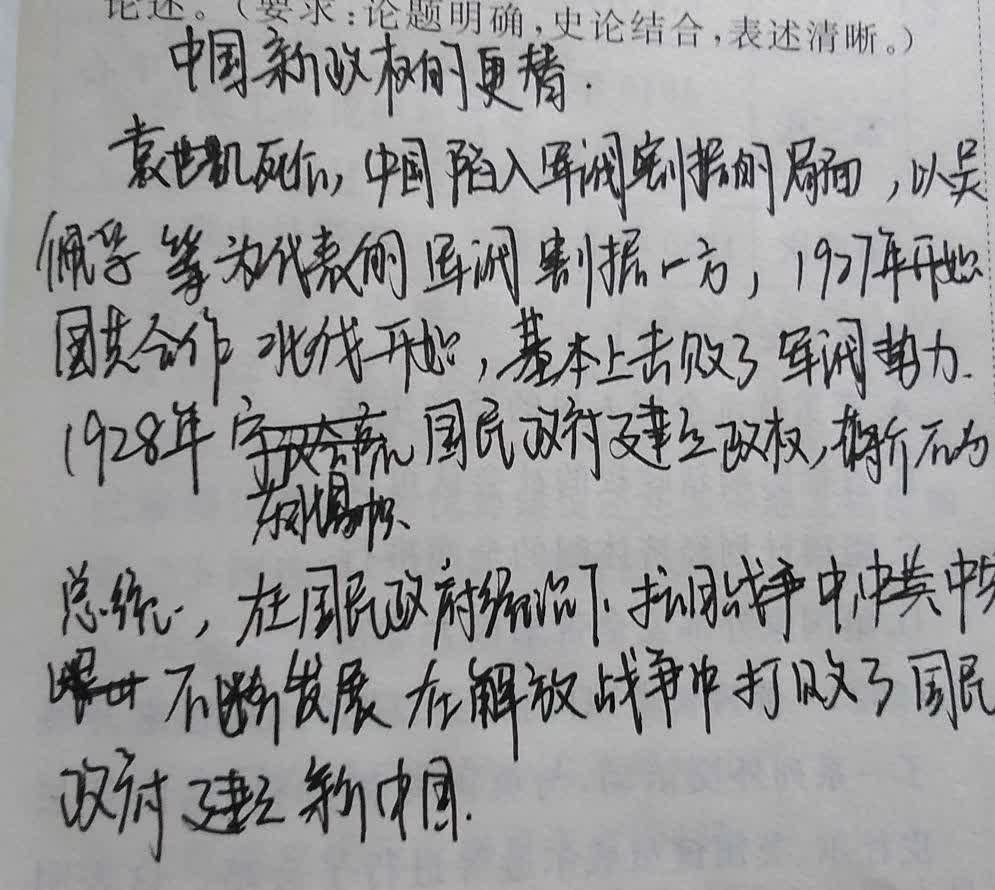 论述。(要求:论题明确,史论结合,表述清晰。)
中国新政权的更替.
袁世凯死后,中国陷入军阀割据的局面,以吴
佩孚等为代表的军阀割据一方,1927年开始
国共合作 北伐开始,基本上击败了军阀势力.
1928年 国民政府建立政权,蒋介石为
东北易帜、
总统,在国民政府统治下.抗日战争中,中共中央
不断发展 在解放战争中打败了国民
政府 建立新中国.